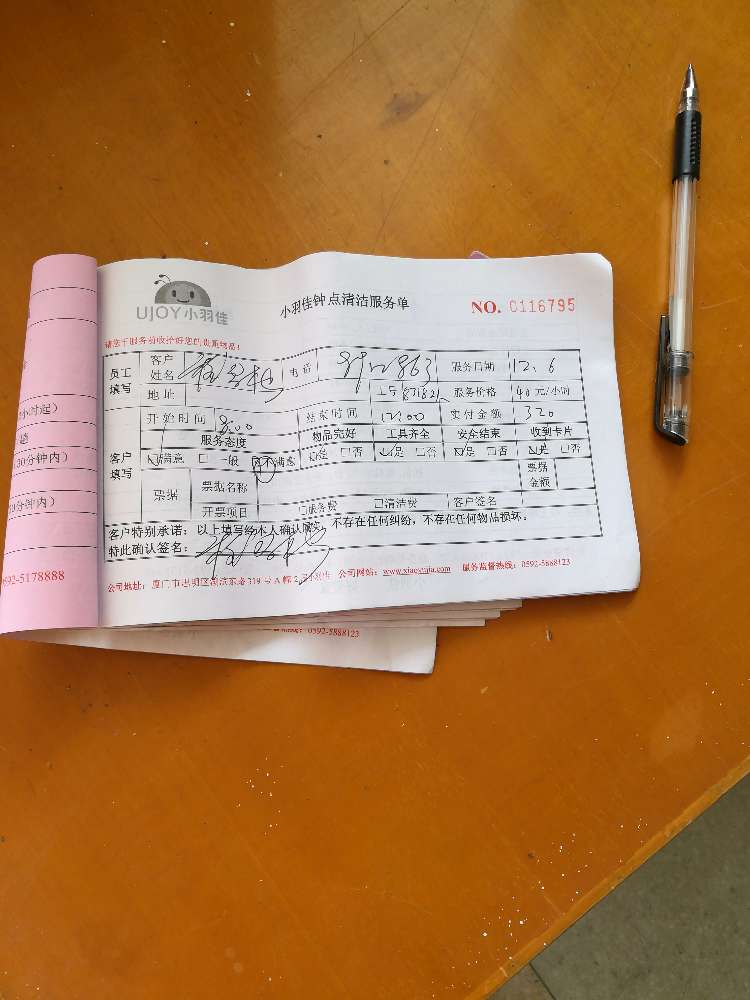 UJOY小羽佳
小羽佳钟点清洁服务单
NO. 0116795
员工填写 客户姓名 电话 服务日期 12.6
地址 服务价格 40元/小时
开始时间 8:00 结束时间 12:00 实付金额 320
客户填写 服务态度 物品完好 工具齐全 安全结束 收到卡片
满意 一般 不满意 是 否 是 否 是 否 是 否
票据 票据名称 票据金额
开票项目 服务费 清洁费 客户签名
客户特别承诺：以上填写经本人确认属实，不存在任何纠纷，不存在任何物品损坏。
特此确认签名：
公司地址：厦门市思明区湖滨东路319号A幢2层 公司网站：www.xiaoyujia.com 服务监督热线：0592-5888123
小时起）
30分钟内）
0分钟内）
0592-5178888
0592-5888123